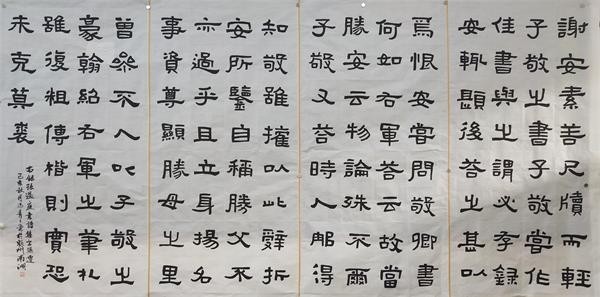 謝安素善尺牘而輕
子敬之書子敬嘗作
佳書與之謂必存錄
安輒題後答之甚以
爲恨安嘗問敬卿書
何如右軍答云故當
勝安云物論殊不爾
子敬又答時人那得
知敬雖權以此辭折
安所鑒自稱勝父不
亦過乎且立身揚名
事資尊顯勝母之里
曾參不入以子敬之
豪翰紹右軍之筆札
雖復粗傳楷則實恐
未克箕裘
右錄孫過庭書譜
己亥秋月